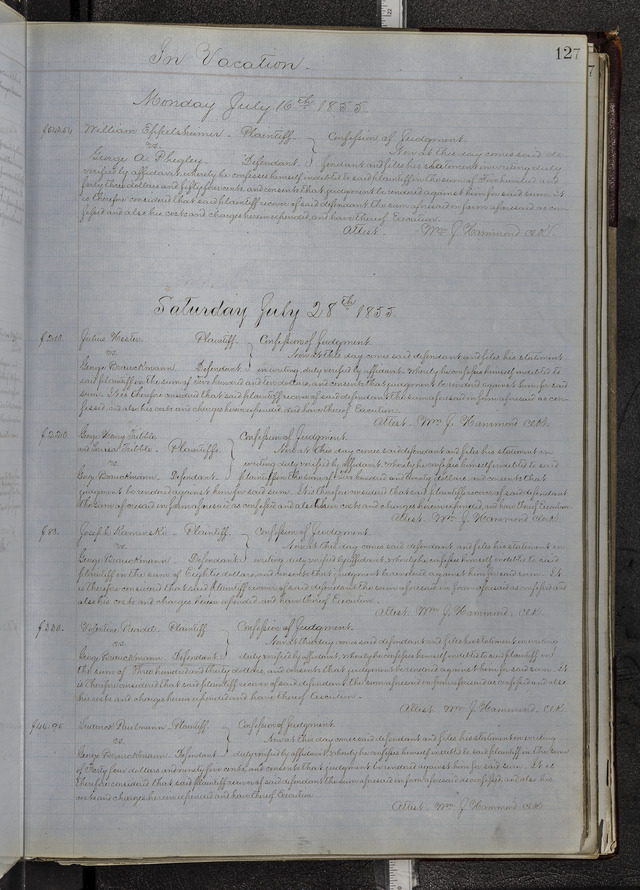 127
In Vacation
Monday July 16th 1855.
William Eppelsheimer - Plaintiff. Confession of Judgment.
vs. Now at this day comes said de-
George A. Phegley. Defendant. fendant and files his statement in writing duly
verified by affidavit, whereby he confesses himself indebted to said plaintiff in the sum of hundred and
forty three dollars and fifty four cents, and consents that judgment be rendered against him for said sum. It
is therefore considered that said plaintiff recover of said defendant the sum aforesaid in form aforesaid as con-
fessed and also his costs and charges herein expended, and have thereof Execution.
Attest. Wm J. Hammond Clk.
Saturday July 28th 1855.
$210. Julius Plaintiff Confession of Judgment.
vs. Now at this day comes said defendant and files his statement
George Defendant in writing, duly verified by affidavit, whereby he confesses himself indebted to
said plaintiff in the sum of Two hundred and ten dollars, and consents that judgment be rendered against him for said
sum. It is therefore considered that said plaintiff recover of said defendant the sum aforesaid in form aforesaid as con-
fessed, and also his costs and charges herein expended, and have thereof Execution.
Attest. Wm J. Hammond Clk.
George Henry Confession of Judgment.
and Plaintiffs. Now at this day comes said defendant and files his statement in
vs. writing duly verified by affidavit, whereby he confesses himself indebted to said
Defendant. plaintiffs in the sum of Two hundred and dollars, and consents that
judgment be rendered against him for said sum. It is therefore considered that said plaintiffs recover of said defendant
the sum aforesaid in form aforesaid as confessed and also their costs and charges herein expended, and have thereof Execution
Attest. Wm J. Hammond Clk.
$80. Joseph Kaminski - Plaintiff. Confession of Judgment.
vs. Now at this day comes said defendant and files his statement in
George Defendant. writing, duly verified by affidavit, whereby he confesses himself indebted to said
plaintiff in the sum of Eighty dollars, and consents that judgment be rendered against him for said sum. It
is therefore considered that said plaintiff recover of said defendant the sum aforesaid in form aforesaid as confessed and
also his costs and charges herein expended, and have thereof Execution.
Attest. Wm J. Hammond, Clk.
Valentine Plaintiff Confession of Judgment.
vs. Now at this day comes said defendant and files his statement in writing
Defendant duly verified by affidavit, whereby he confesses himself indebted to said plaintiff in
the sum of Three hundred and thirty dollars, and consents that judgment be rendered against him for said sum. It
is therefore considered that said plaintiff recover of said defendant the sum aforesaid in form aforesaid as confessed and also
his costs and charges herein expended and have thereof Execution.
Attest Wm J. Hammond, Clk.
$44.95 Plaintiff Confession of Judgment.
vs. Now at this day comes said defendant and files his statement in writing
Defendant duly verified by affidavit, whereby he confesses himself indebted to said plaintiff in the sum
of Forty four dollars and ninety five cents, and consents that judgment be rendered against him for said sum. It is
therefore considered that said plaintiff recover of said defendant the sum aforesaid in form aforesaid as confessed, and also his
costs and charges herein expended and have thereof Execution
Attest. Wm J. Hammond Clk